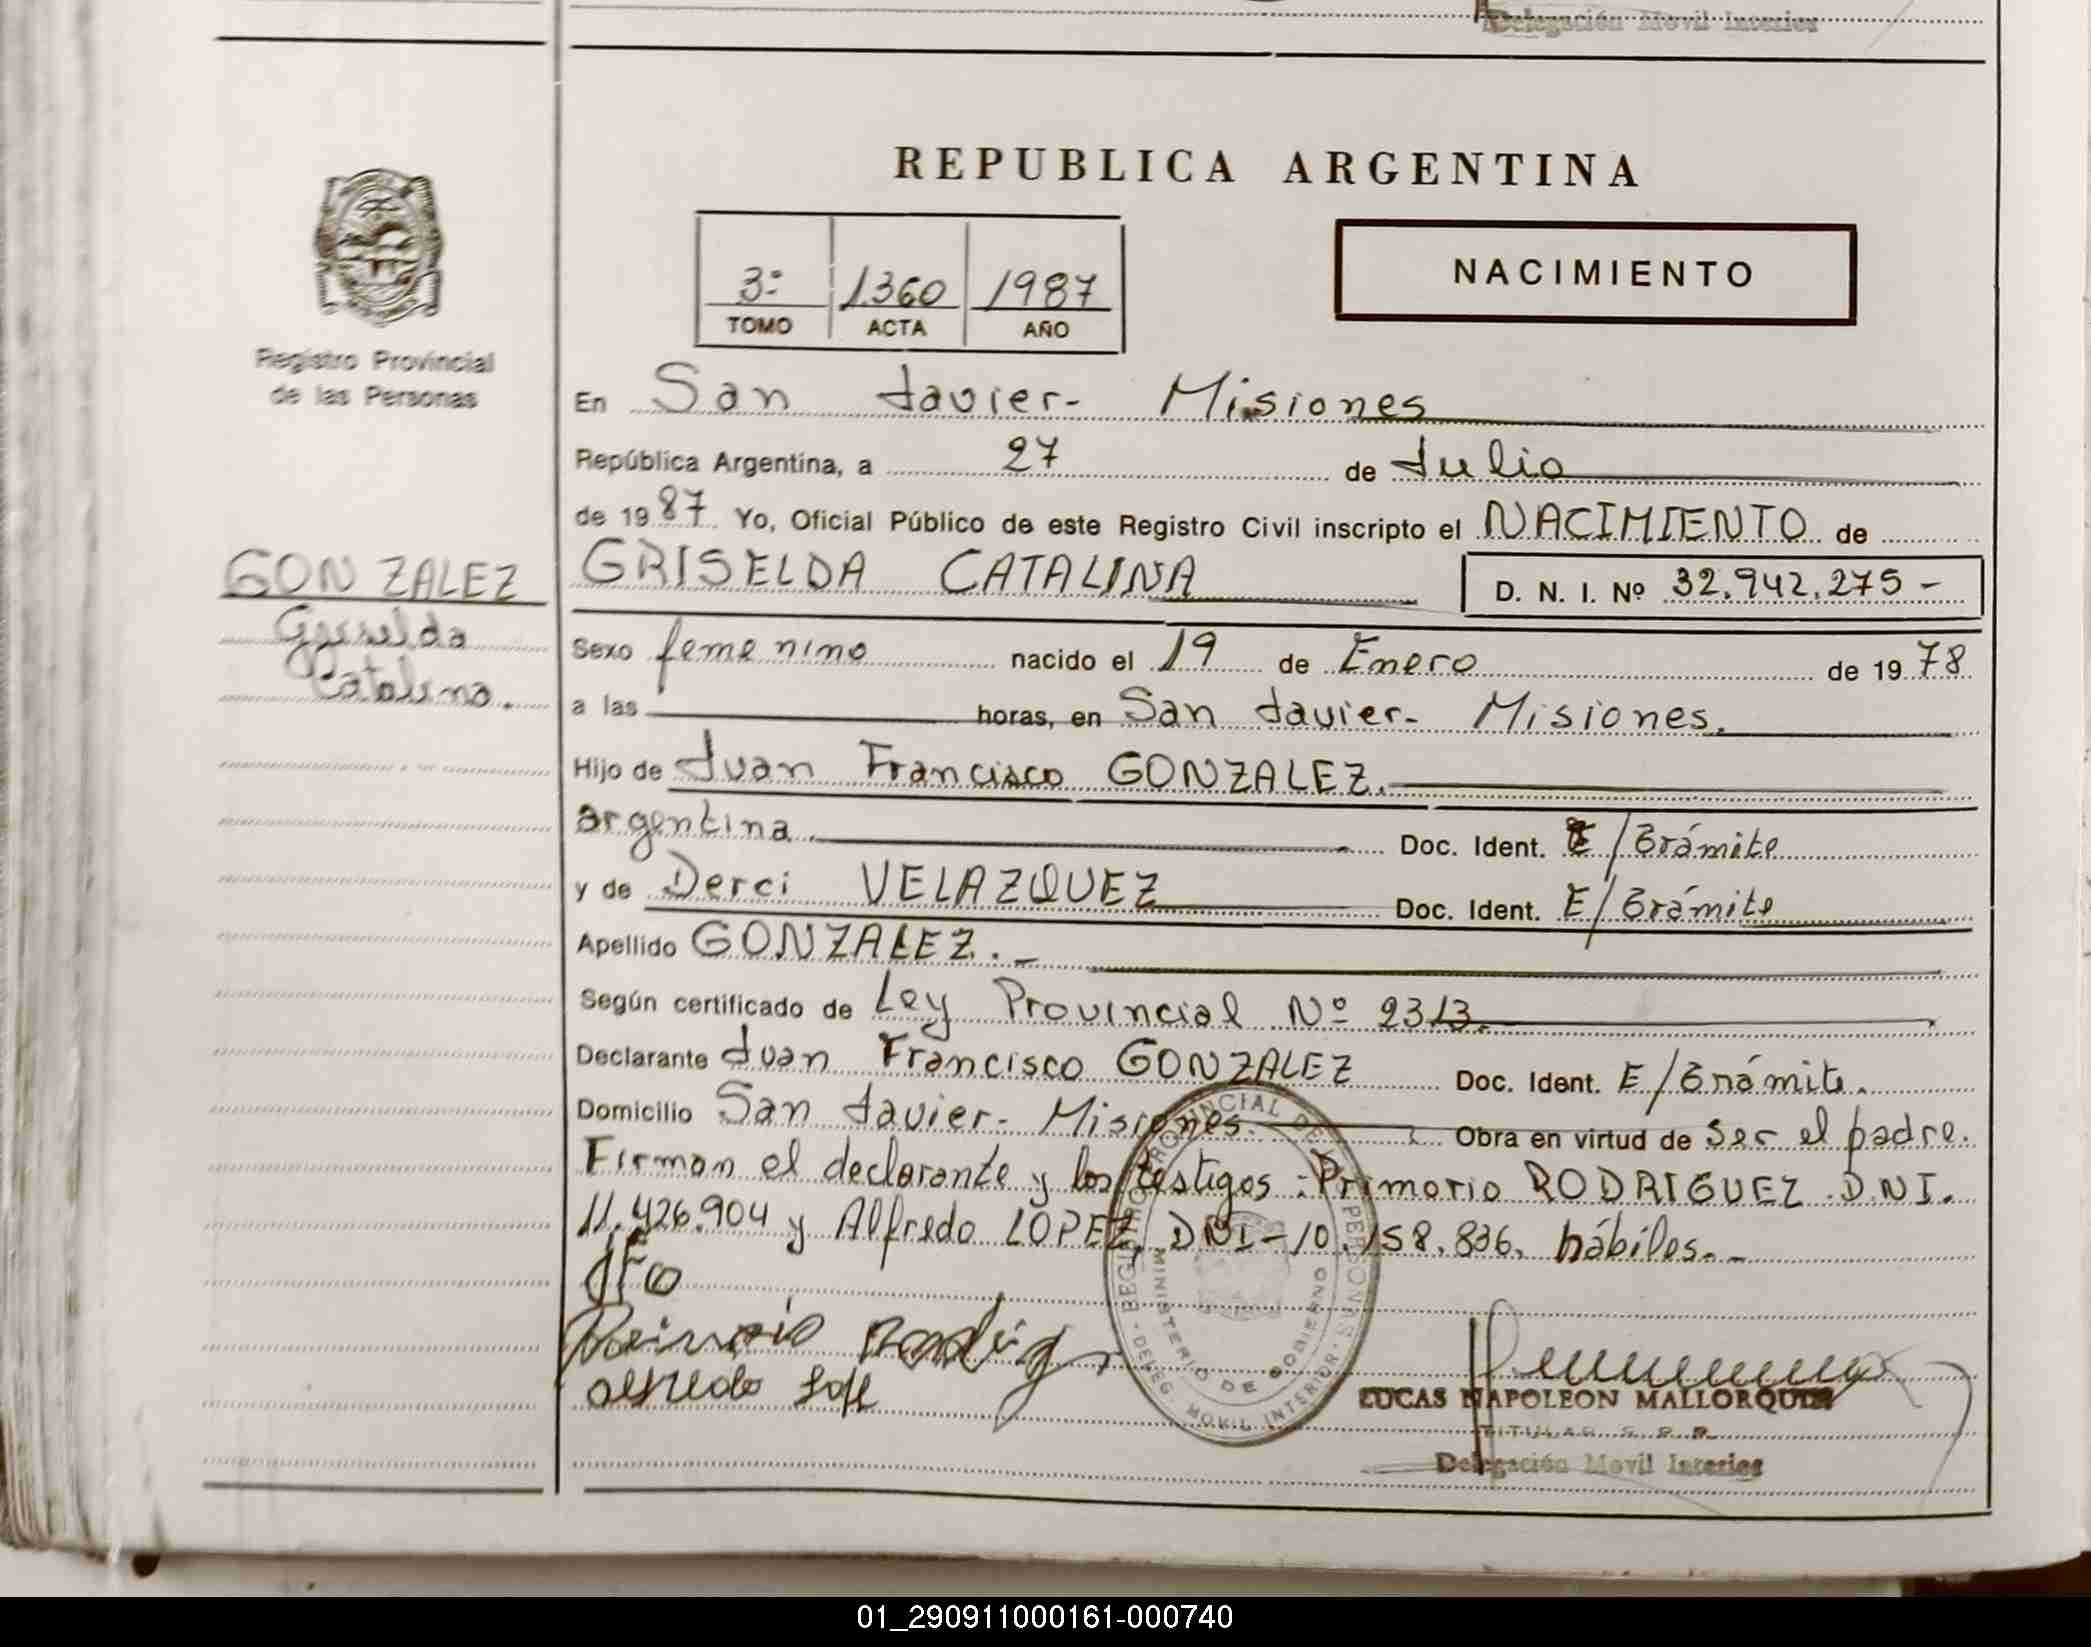 Delegación Movil Interior
REPUBLICA ARGENTINA
3º 1360 1987
TOMO ACTA AÑO
NACIMIENTO
Registro Provincial
de las Personas
En San Javier- Misiones
República Argentina, a 27 de Julio
de 1987 Yo, Oficial Público de este Registro Civil inscripto el NACIMIENTO de
GONZALEZ
Griselda
Catalina.
GRISELDA CATALINA D. N. I. Nº 32.942.275-
Sexo femenino nacido el 19 de Enero de 1978
a las horas, en San Javier- Misiones.
Hijo de Juan Francisco GONZALEZ.
argentina. Doc. Ident. E/trámite
y de Derci VELAZQUEZ Doc. Ident. E/trámite
Apellido GONZALEZ.-
Según certificado de Ley Provincial Nº 2313.
Declarante Juan Francisco GONZALEZ Doc. Ident. E/trámite.
Domicilio San Javier- Misiones. Obra en virtud de Ser el padre.
Firman el declarante y los testigos: Primorio RODRIGUEZ DNI.
11.426.904 y Alfredo LOPEZ, DNI-10.158.836, hábiles.-
REGISTRO PROVINCIAL DE LAS PERSONAS
MINISTERIO DE GOBIERNO
DELEG. MOVIL INTERIOR
LUCAS NAPOLEON MALLORQUIN
TITULAR
Delegación Movil Interior
01_290911000161-000740